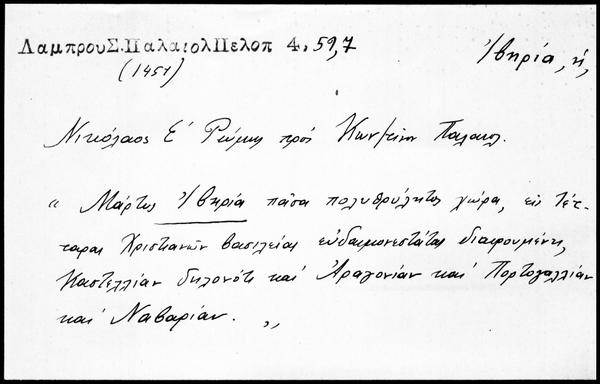 ΛαμπρουΣ.ΠαλαιολΠελοπ 4,59,7
Ἰβηρία, ἡ,
(1451)
Νικόλαος Ε' Ρώμης πρός Κων/τῖνον Παλαιολ.
"Μάρτυς Ἰβηρία πᾶσα πολυθρύλητος χώρα, εἰς τέτ-
ταρας Χριστιανῶν βασιλείας εὐδαιμονεστάτας διαιρουμένη,
Καστελλίαν δηλονότι καί Ἀραγονίαν καί Πορτογαλλίαν
καί Ναβαρίαν. "